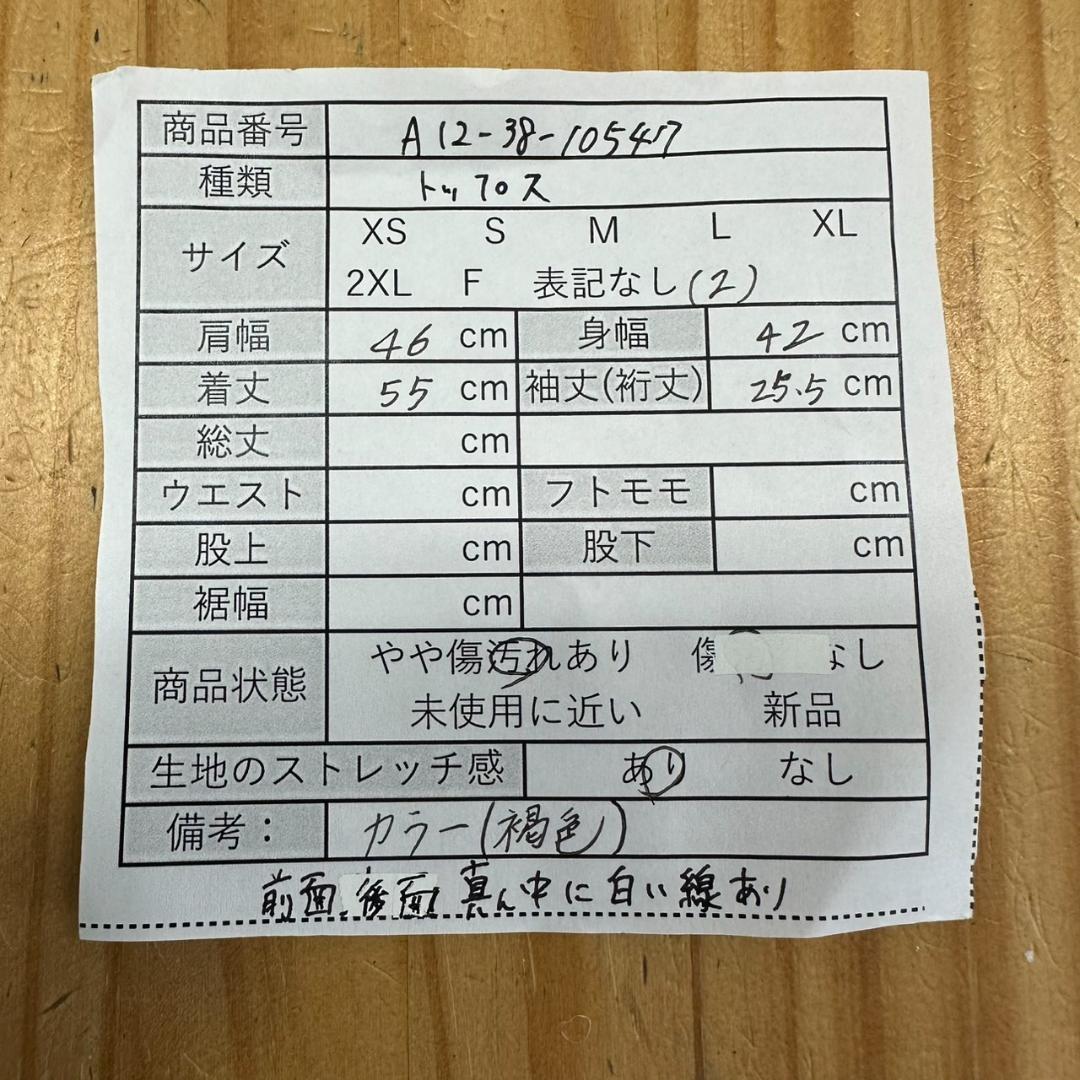 商品番号 A12-38-105417
種類 トップス
サイズ XS S M L XL
2XL F 表記なし(2)
肩幅 46 cm 身幅 42 cm
着丈 55 cm 袖丈(裄丈) 25.5 cm
総丈 cm
ウエスト cm フトモモ cm
股上 cm 股下 cm
裾幅 cm
商品状態 やや傷汚れあり 傷 なし
未使用に近い 新品
生地のストレッチ感 あり なし
備考: カラー(褐色)
前面 後面 真ん中に白い線あり